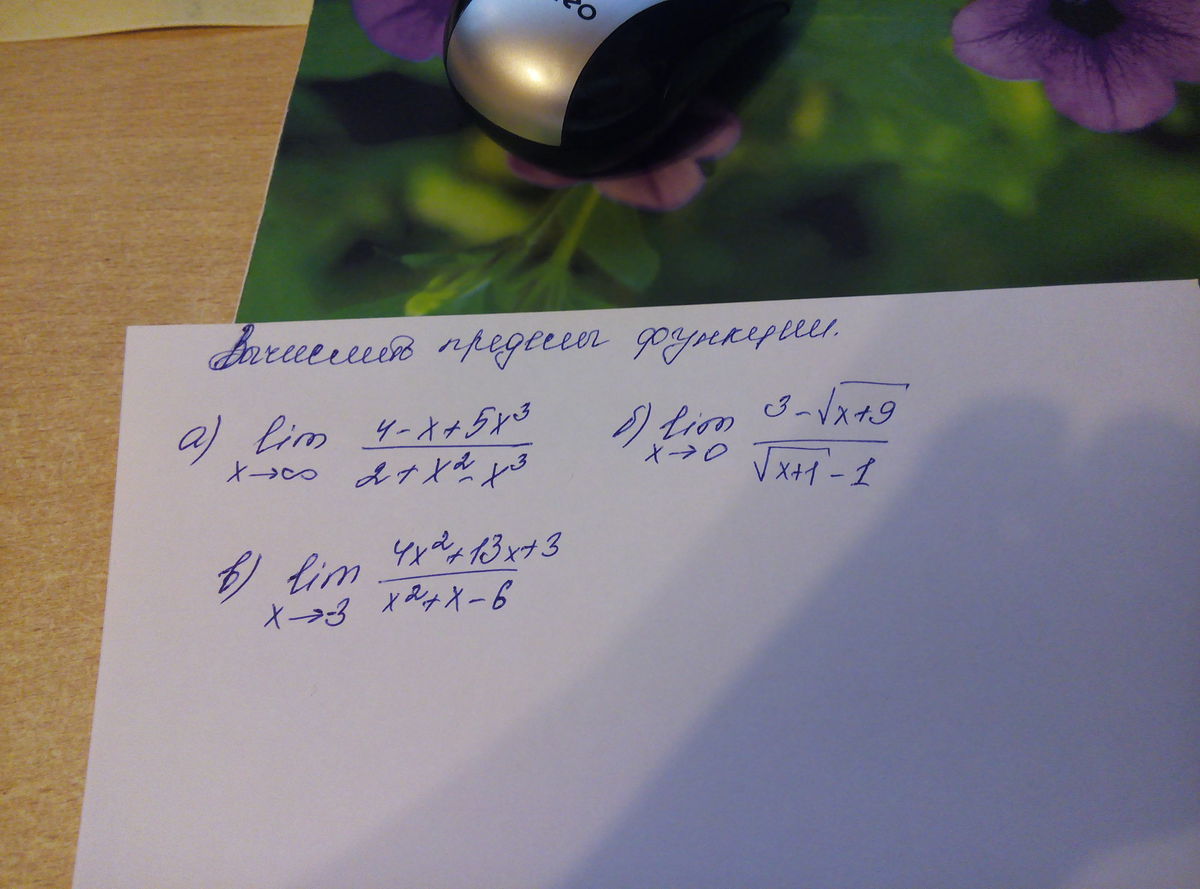 Вычислить пределы функции.
а) lim x→∞ (4-x+5x³)/(2+x²-x³) б) lim x→0 (3-√(x+9))/(√(x+1)-1)
в) lim x→-3 (4x²+13x+3)/(x²+x-6)